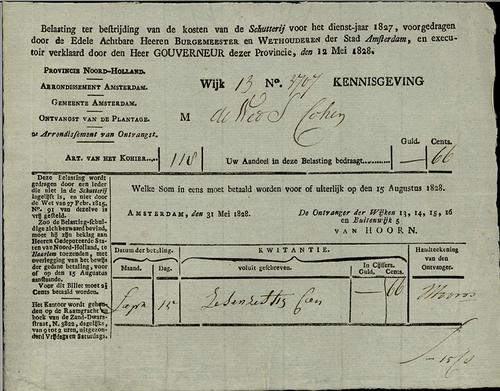 Belasting ter bestrijding van de kosten van de Schutterij voor het dienst-jaar 1827, voorgedragen
door de Edele Achtbare Heeren BURGEMEESTER en WETHOUDEREN der Stad Amsterdam, en execu-
toir verklaard door den Heer GOUVERNEUR dezer Provincie, den 12 Mei 1828.
PROVINCIE NOORD-HOLLAND.
ARRONDISSEMENT AMSTERDAM.
GEMEENTE AMSTERDAM.
ONTVANGST VAN DE PLANTAGE.
2e Arrondissement van Ontvangst.
ART. VAN HET KOHIER..... 118
WIJK 13 No. 5707 KENNISGEVING
M de Wed S Cohen
Guld. Cents.
Uw Aandeel in deze Belasting bedraagt........... — 66
Welke Som in eens moet betaald worden voor of uiterlijk op den 15 Augustus 1828.
AMSTERDAM, den 31 Mei 1828.
De Ontvanger der Wijken 13, 14, 15, 16
en Buitenwijk 5
VAN HOORN.
Deze Belasting wordt
gedragen door een ieder
die niet in de Schutterij
ingelijfd is, en niet door
de Wet van 27 Febr. 1815,
No. 91 van dezelve is
vrij gesteld.
Zoo de Belasting-schul-
dige zich bezwaard bevind,
moet hij zijn beklag aan
Heeren Gedeputeerde Sta-
ten van Noord-Holland, te
Haarlem toezenden, met
overlegging van het bewijs
der gedane betaling, voor
of op den 15 Augustus
aanstaande.
Voor dit Billet moet 2½
Cents betaald worden.
Het Kantoor word gehou-
den op de Raamgracht
hoek van de Zand-Dwars-
straat, N. 3822, dagelijks,
van 9 tot 2 uren, uitgezon-
derd Vrijdags en Saturdags.
Datum der betaling.
Maand. Dag.
KWITANTIE.
voluit geschreven.
In Cijffers.
Guld. Cents.
Handteekening
van den
Ontvanger.
15
Zes en zestig Cen
— 66